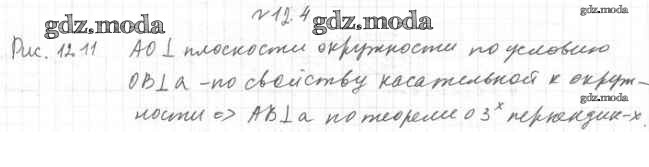 √12.4
gdz.moda
gdz.moda
gdz.moda
Рис. 12.11 АО⊥ плоскости окружности по условию
OB⊥a - по свойству касательной к окруж-
gdz.moda
ности => AB⊥a по теореме о 3ˣ перпендик-х.